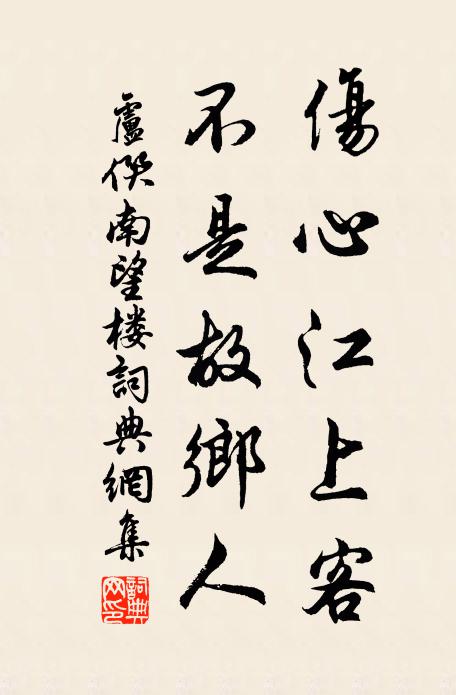 傷心江上客
不是故鄉人
盧僎南望楼詞典網集
詞典网印